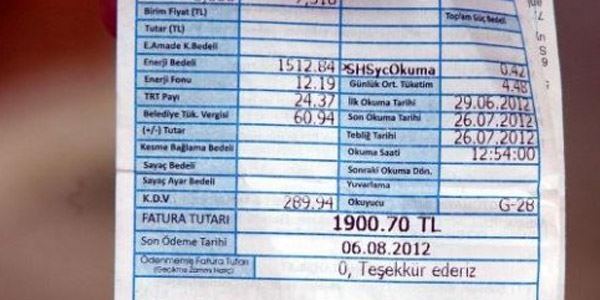 Birim Fiyat (TL)
Toplam Güç Bedeli
Tutar (TL)
E.Amade K.Bedeli
Enerji Bedeli 1512.84 >SHSycOkuma 0.42
Enerji Fonu 12.19 Günlük Ort. Tüketim 4.48
TRT Payı 24.37 İlk Okuma Tarihi 29.06.2012
Belediye Tük. Vergisi 60.94 Son Okuma Tarihi 26.07.2012
(+/-) Tutar Tebliğ Tarihi 26.07.2012
Kesme Bağlama Bedeli Okuma Saati 12:54:00
Sayaç Bedeli Sonraki Okuma Dön.
Sayaç Ayar Bedeli Yuvarlama
K.D.V 289.94 Okuyucu G-28
FATURA TUTARI 1900.70 TL
Son Ödeme Tarihi 06.08.2012
Ödenmemiş Fatura Tutarı 0, Teşekkür ederiz
(Gecikme Zammı Hariç)